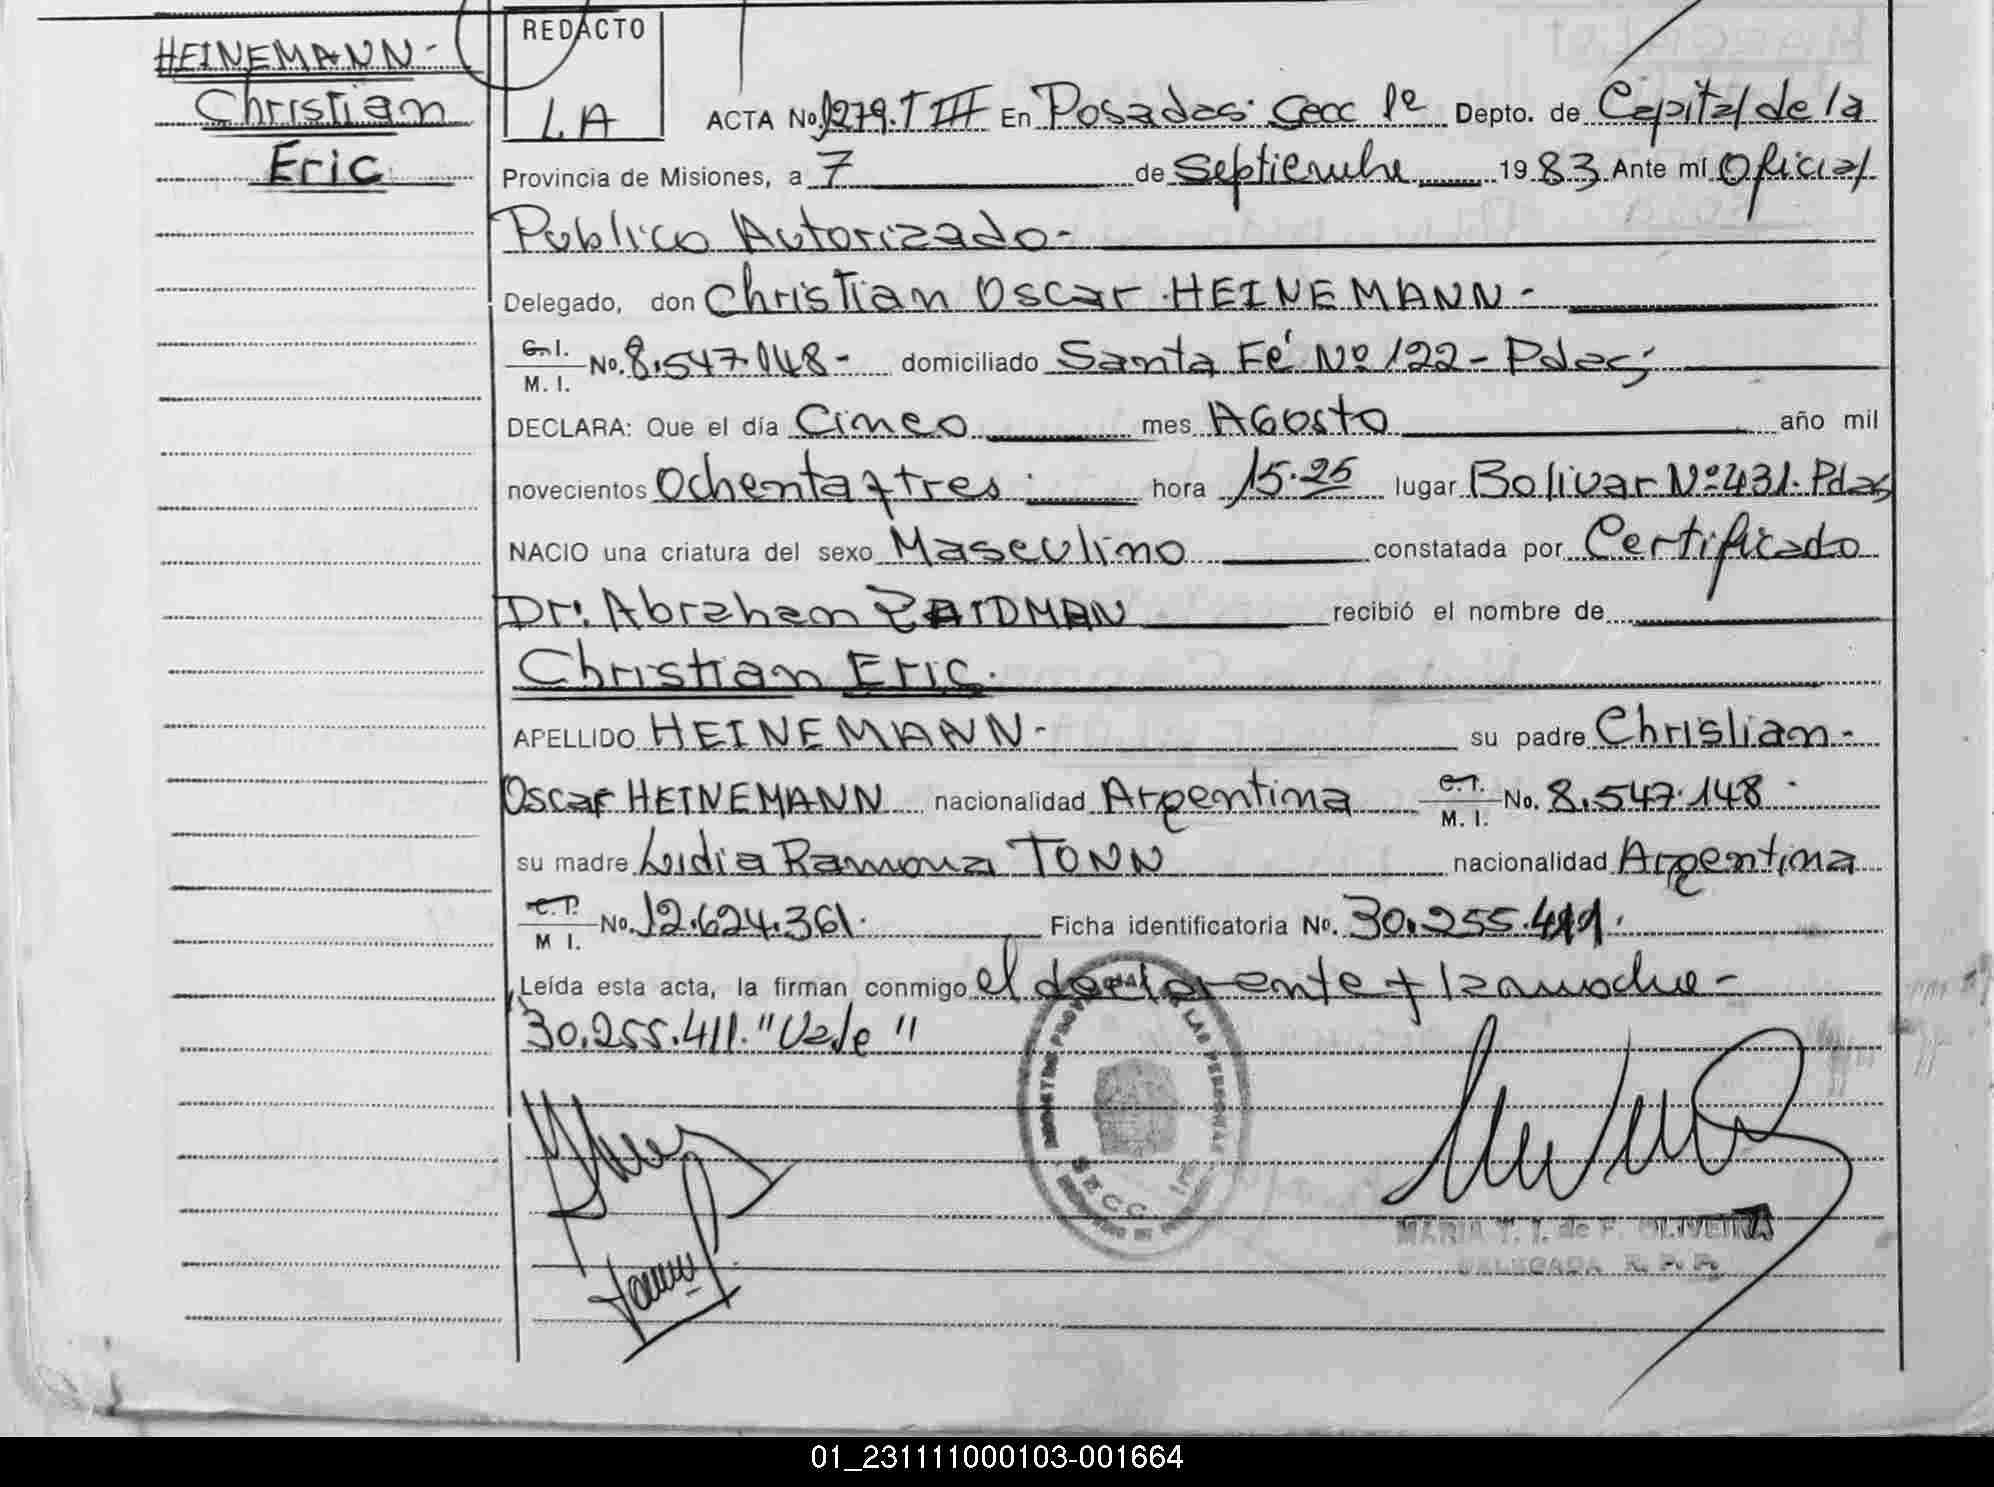 HEINEMANN-
Christian
Eric
REDACTO
LA
ACTA No. 1279. T III En Posadas. Secc 1º Depto. de Capital de la
Provincia de Misiones, a 7 de Septiembre 1983. Ante mí Oficial
Publico Autorizado-
Delegado, don Christian Oscar HEINEMANN-
C.I. M.I. No. 8.547.148- domiciliado Santa Fé Nº 122 - Pdas
DECLARA: Que el día Cinco mes AGosto año mil
novecientos Ochenta y tres hora 15.25 lugar Bolivar Nº 431. Pdas
NACIO una criatura del sexo Masculino constatada por Certificado
Dr: Abraham ZAIDMAN recibió el nombre de
Christian Eric.
APELLIDO HEINEMANN- su padre Christian-
Oscar HEINEMANN nacionalidad Argentina C.I. M.I. No. 8.547.148.
su madre Lidia Ramona TONN nacionalidad Argentina
C.I. M I. No. 12.624.361. Ficha identificatoria No. 30.255.411.
Leída esta acta, la firman conmigo el declarente y la madre-
30.255.411. "Vale"
REGISTRO PROV DE LAS PERSONAS
SECC. 1ª
MARIA T. I. de F. OLIVEIRA
DELEGADA R. P. P.
01_231111000103-001664